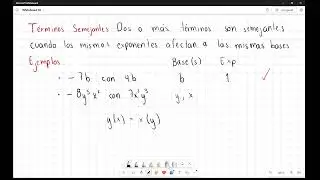 Términos Semejantes Dos o más términos son semejantes
cuando los mismos exponentes afectan a las mismas bases
Ejemplos Base(s) Exp
- 7b con 4b b 1 ✓
- 8y³x² con 7x²y³ y, x
y(x) = x(y)